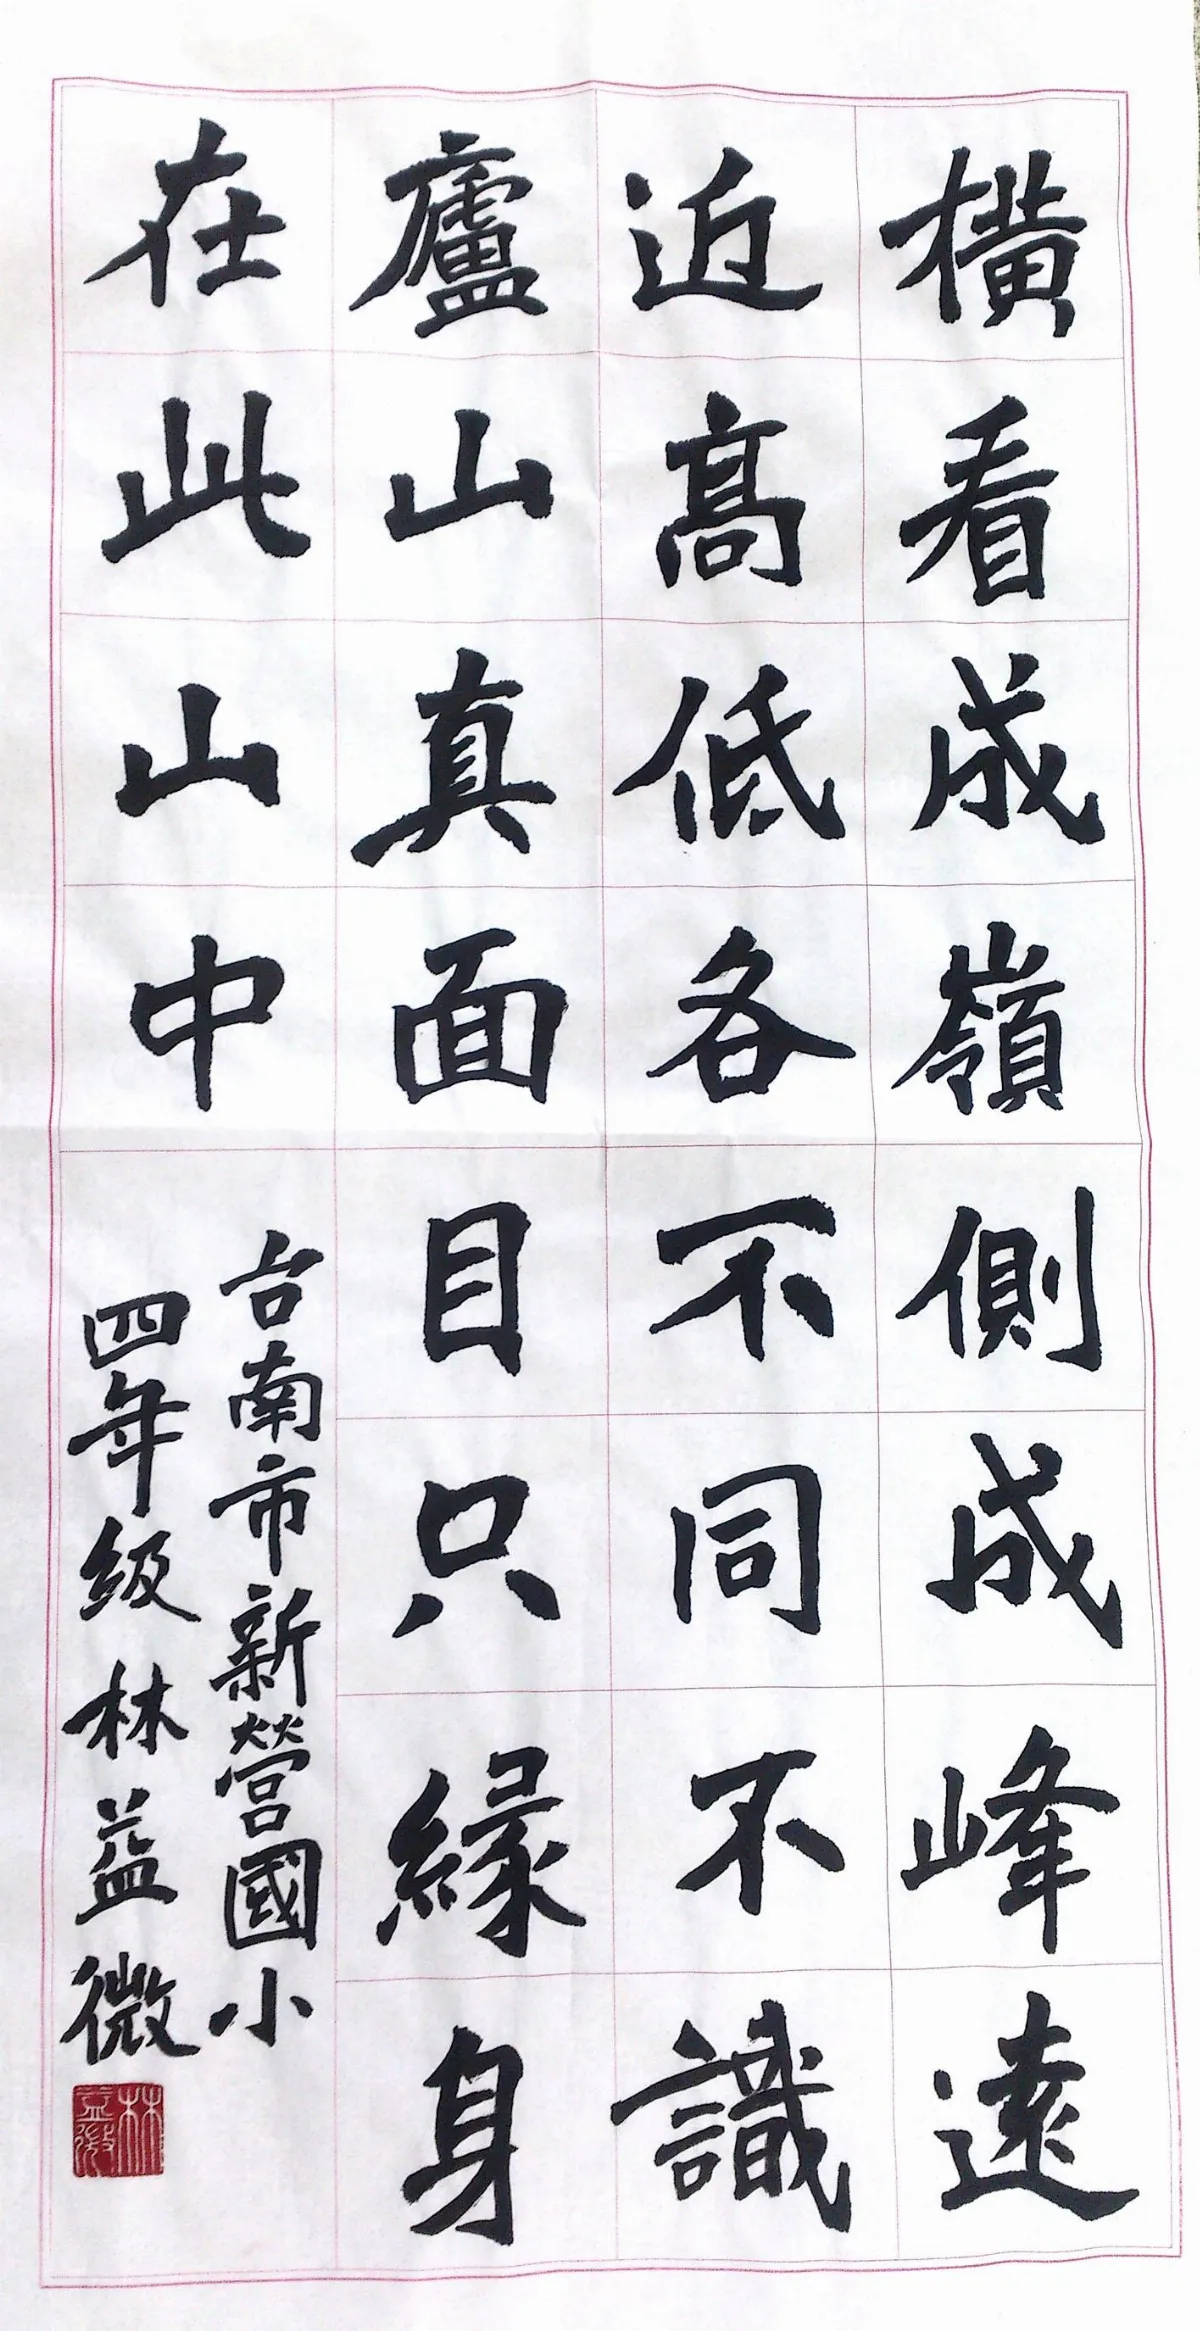 橫看成嶺側成峰遠
近高低各不同不識
廬山真面目只緣身
在此山中
台南市新營國小
四年級林益微
林益微